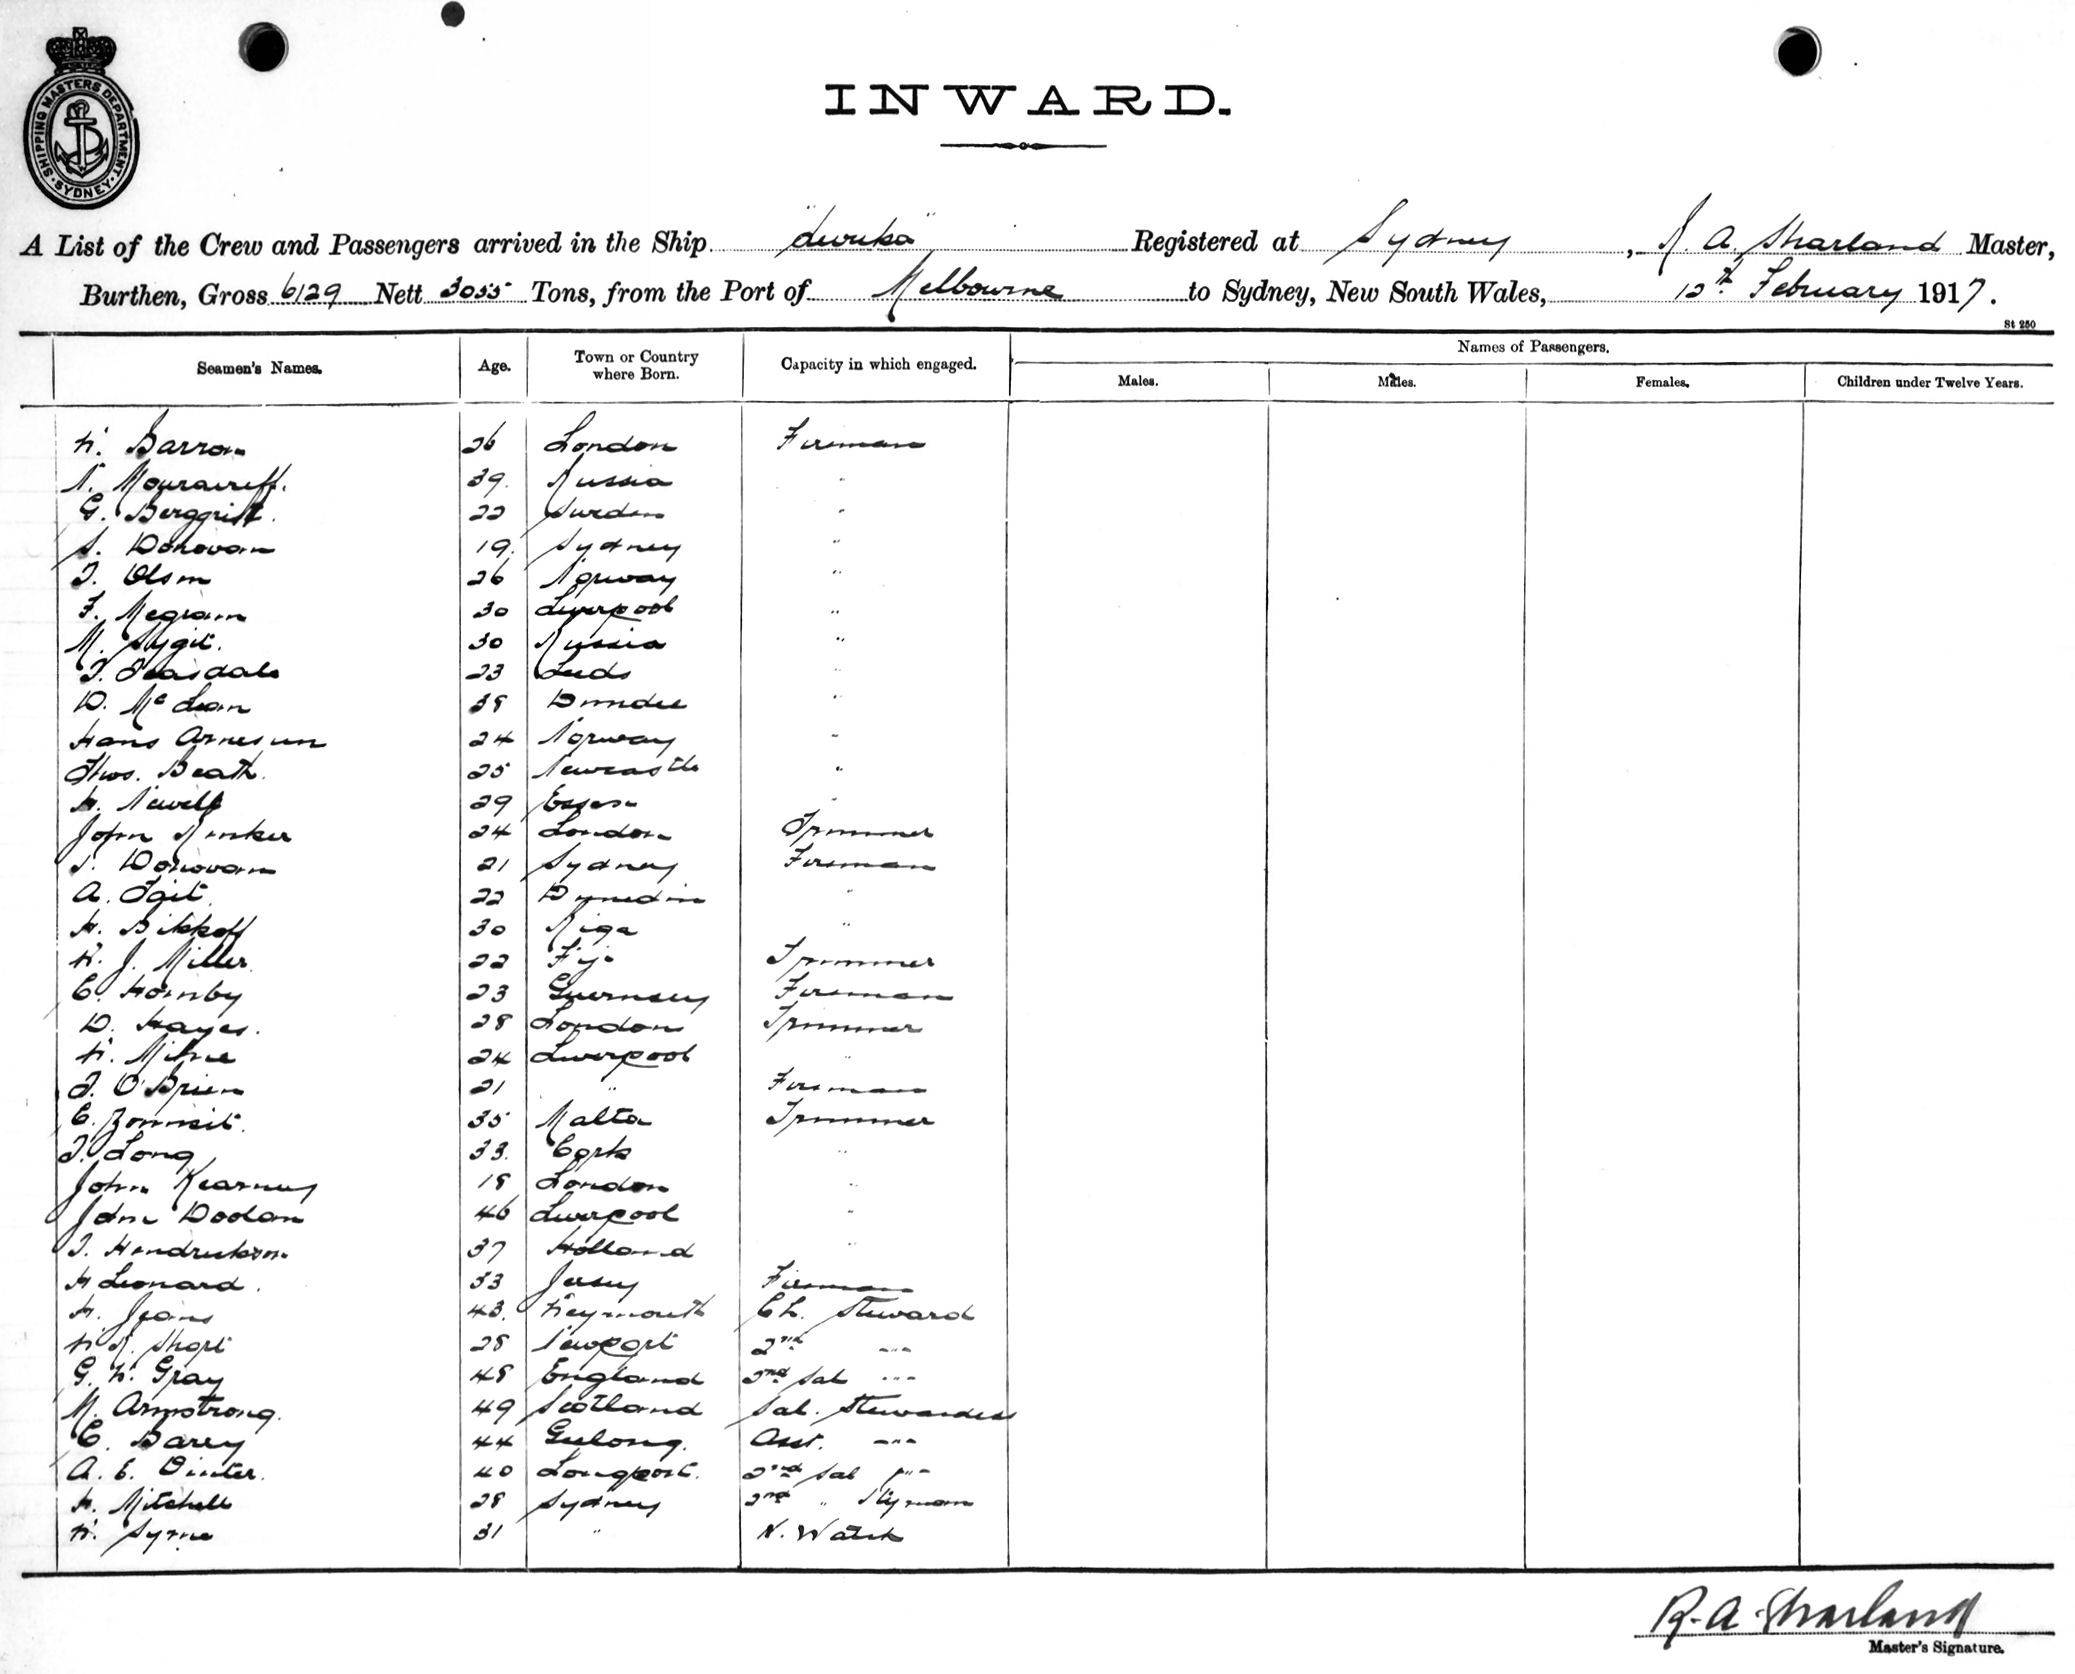 SHIPPING MASTERS DEPARTMENT · SYDNEY ·
INWARD.
A List of the Crew and Passengers arrived in the Ship "Levuka" Registered at Sydney, R. A. Sharland Master,
Burthen, Gross 6129 Nett 3055 Tons, from the Port of Melbourne to Sydney, New South Wales, 12th February 1917.
St 250
Seamen's Names. Age. Town or Country where Born. Capacity in which engaged. Names of Passengers.
Males. Males. Females. Children under Twelve Years.
W. Barron 26 London Fireman
N. Mouravieff. 39. Russia "
G. Bergqvist. 22 Sweden "
S. Donovan 19. Sydney "
T. Olsen 26 Norway "
F. Megram 30 Liverpool "
M. 30 Russia "
T. Teasdale 23 Leeds "
D. McLean 38 Dundee "
Hans Arnesun 24 Norway "
Thos. Beath. 25 Newcastle "
H. Newell 29 Essex "
John 24 London Trimmer
T. Donovan 21 Sydney Fireman
A. Tait. 22 Dunedin "
H. Bikkoff 30 Riga "
W. J. Miller. 22 Fiji Trimmer
C. Hornby 23 Guernsey Fireman
D. Hayes. 28 London Trimmer
W. Milne 24 Liverpool "
T. O'Brien 21 " Fireman
C. 35 Malta Trimmer
T. Long 33. Cork "
John Kearney 18 London "
John Doolan 46 Liverpool "
T. Hendrickson. 37 Holland "
H Leonard. 33 Jersey Fireman
H. Jeans 43. Weymouth Ch. Steward
W R. Short 28 Newport 2nd -"-
G. W. Gray 48 England 2nd Sal -"-
M. Armstrong. 49 Scotland Sal. Stewardess
C. Barry 44 Geelong. Asst. -"-
A. E. Vinter. 40 Longport. 2nd Sal -"-
H. Mitchell 28 Sydney 2nd "
W. Syme 31 " N. Watch
R. A. Sharland
Master's Signature.